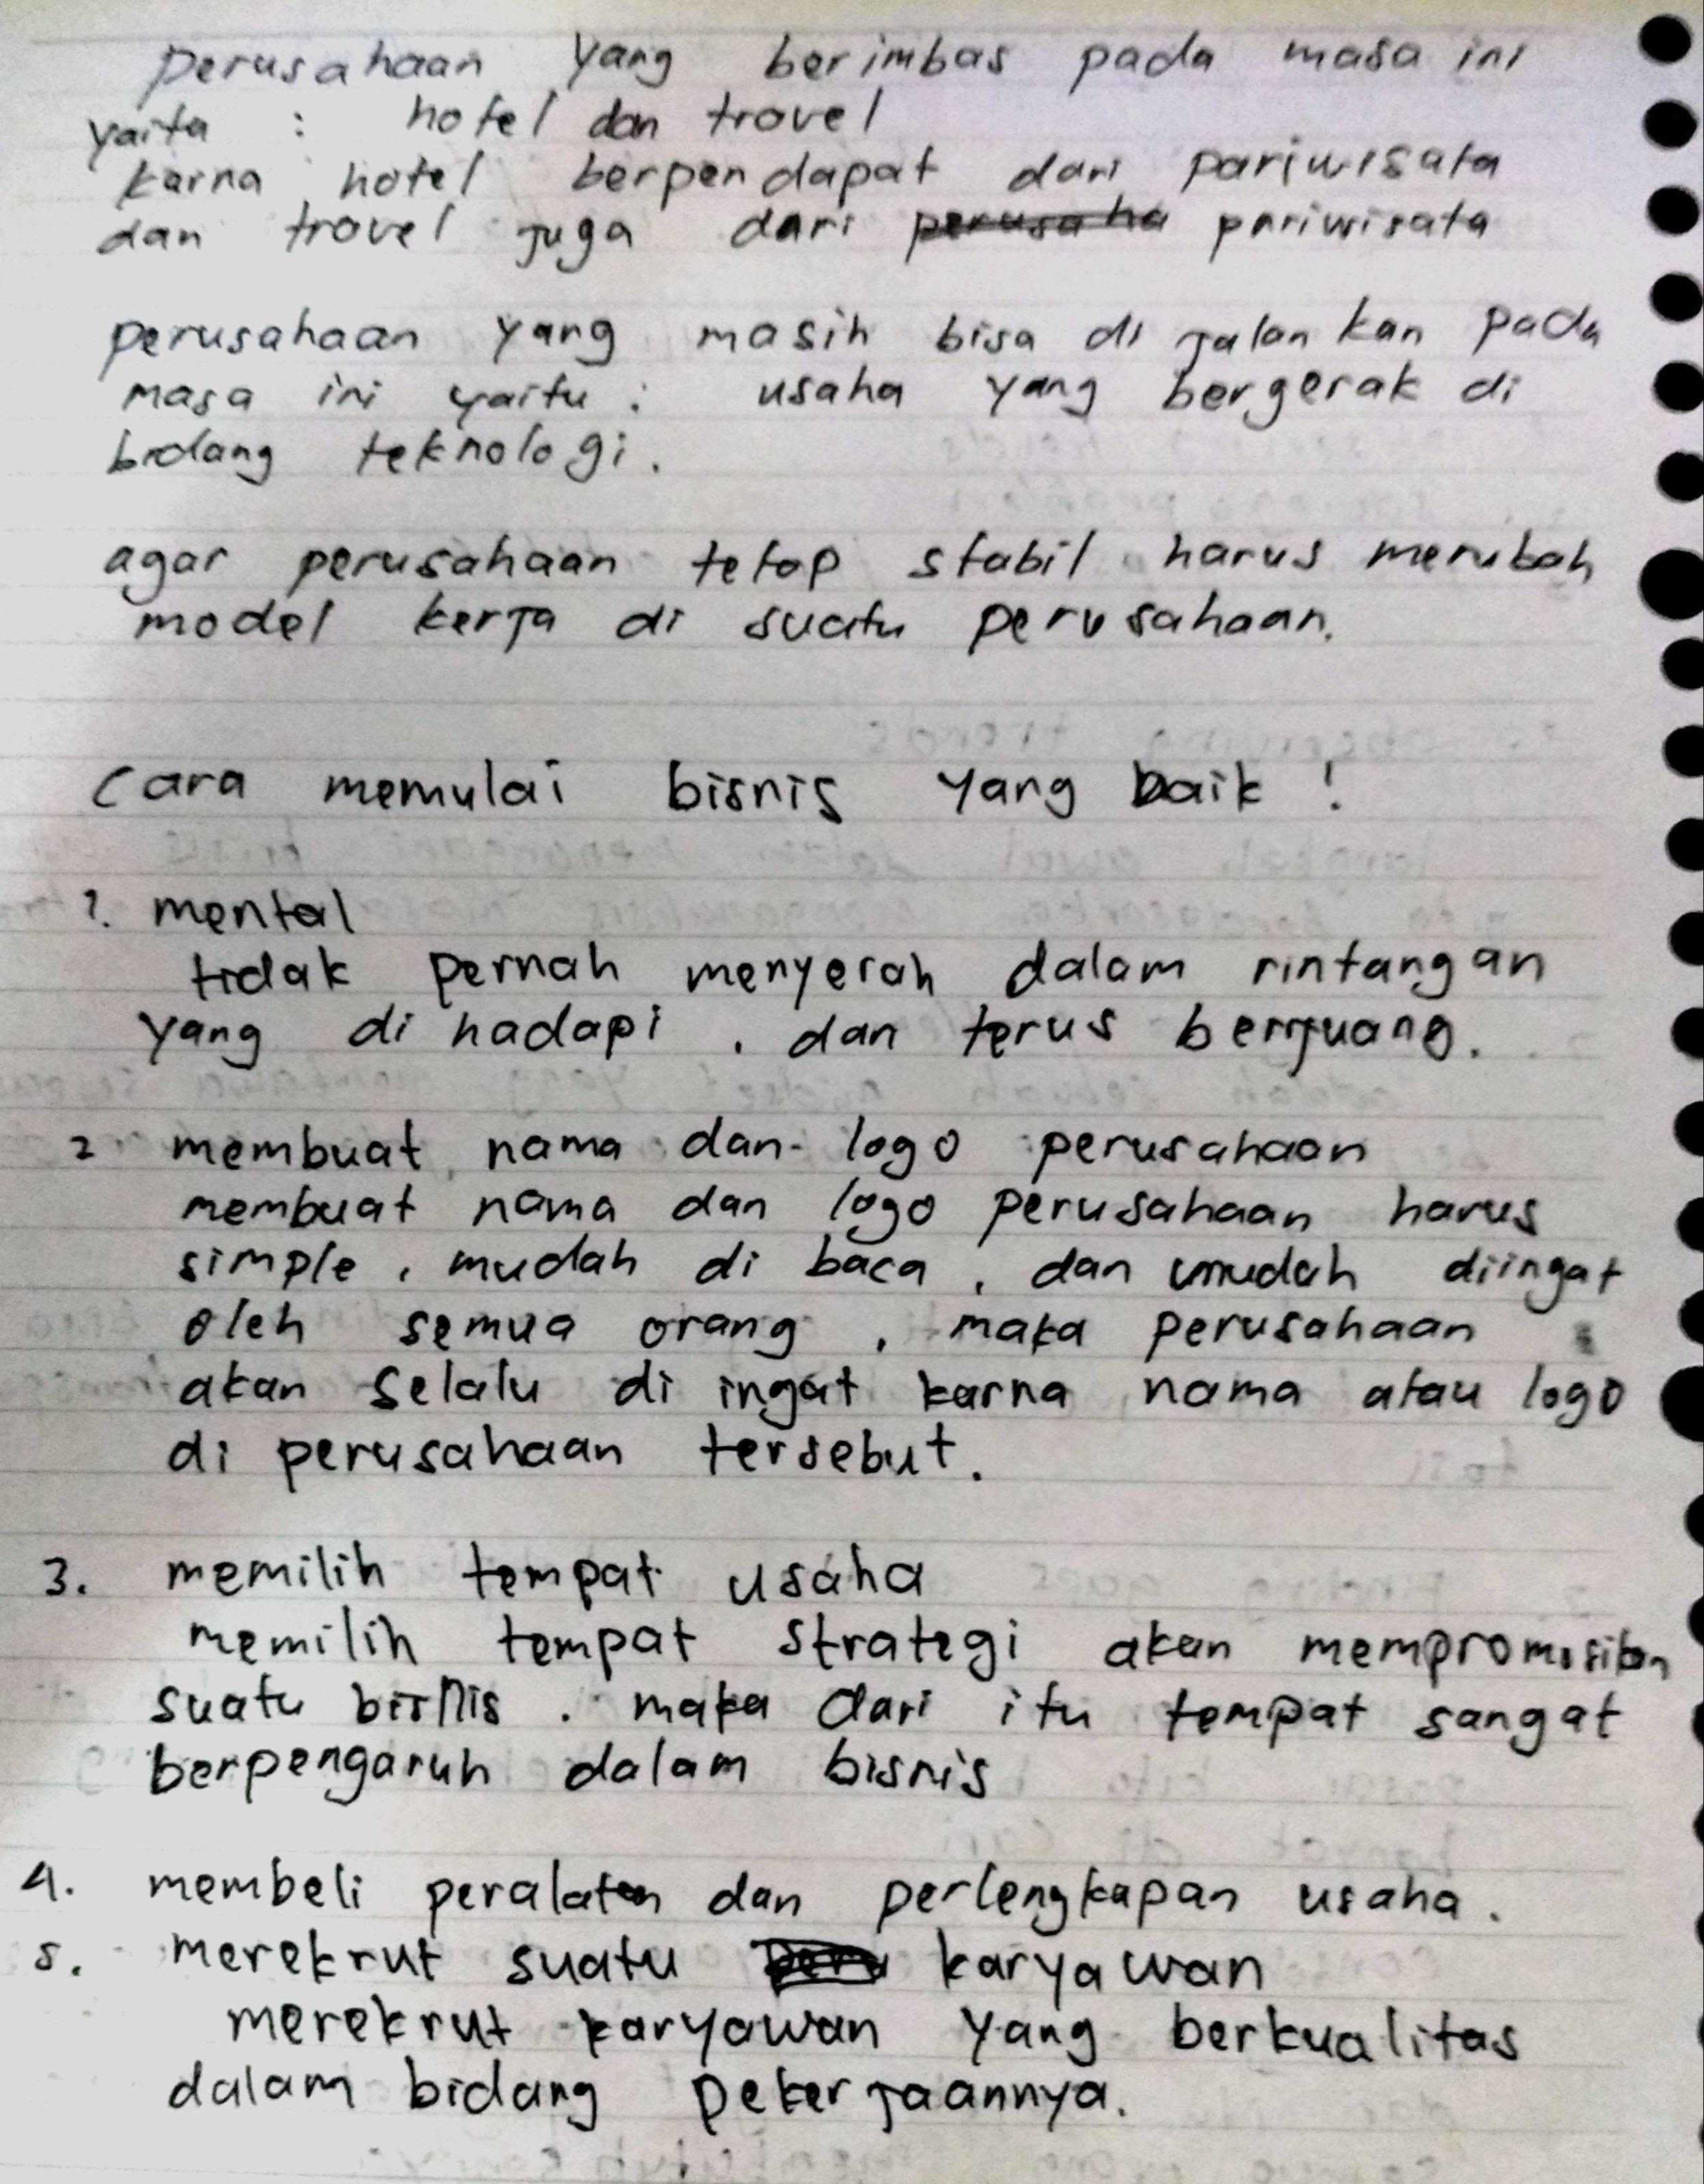 perusahaan yang berimbas pada masa ini
yaita : hotel dan travel
karna hotel berpendapat dari pariwisata
dan travel juga dari perusaha pariwisata
perusahaan yang masih bisa di jalan kan pada
masa ini yaitu : usaha yang bergerak di
bidang teknologi.
agar perusahaan tetap stabil harus merubah
model kerja di suatu perusahaan.
cara memulai bisnis yang baik !
1. mental
tidak pernah menyerah dalam rintangan
yang di hadapi , dan terus berjuang.
2 membuat nama dan logo perusahaan
membuat nama dan logo perusahaan harus
simple , mudah di baca , dan mudah diingat
oleh semua orang , maka perusahaan
akan selalu di ingat karna nama atau logo
di perusahaan tersebut.
3. memilih tempat usaha
memilih tempat strategi akan mempromosikan
suatu bisnis . maka dari itu tempat sangat
berpengaruh dalam bisnis
4. membeli peralatan dan perlengkapan usaha.
5. merekrut suatu karyawan
merekrut karyawan yang berkualitas
dalam bidang pekerjaannya.